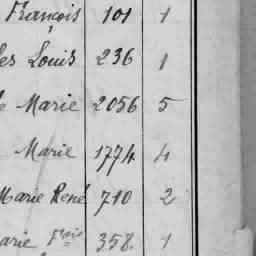 François 101 1
les Louis 236 1
Marie 2056 5
Marie 1774 4
Marie René 710 2
arie Fois 358 1